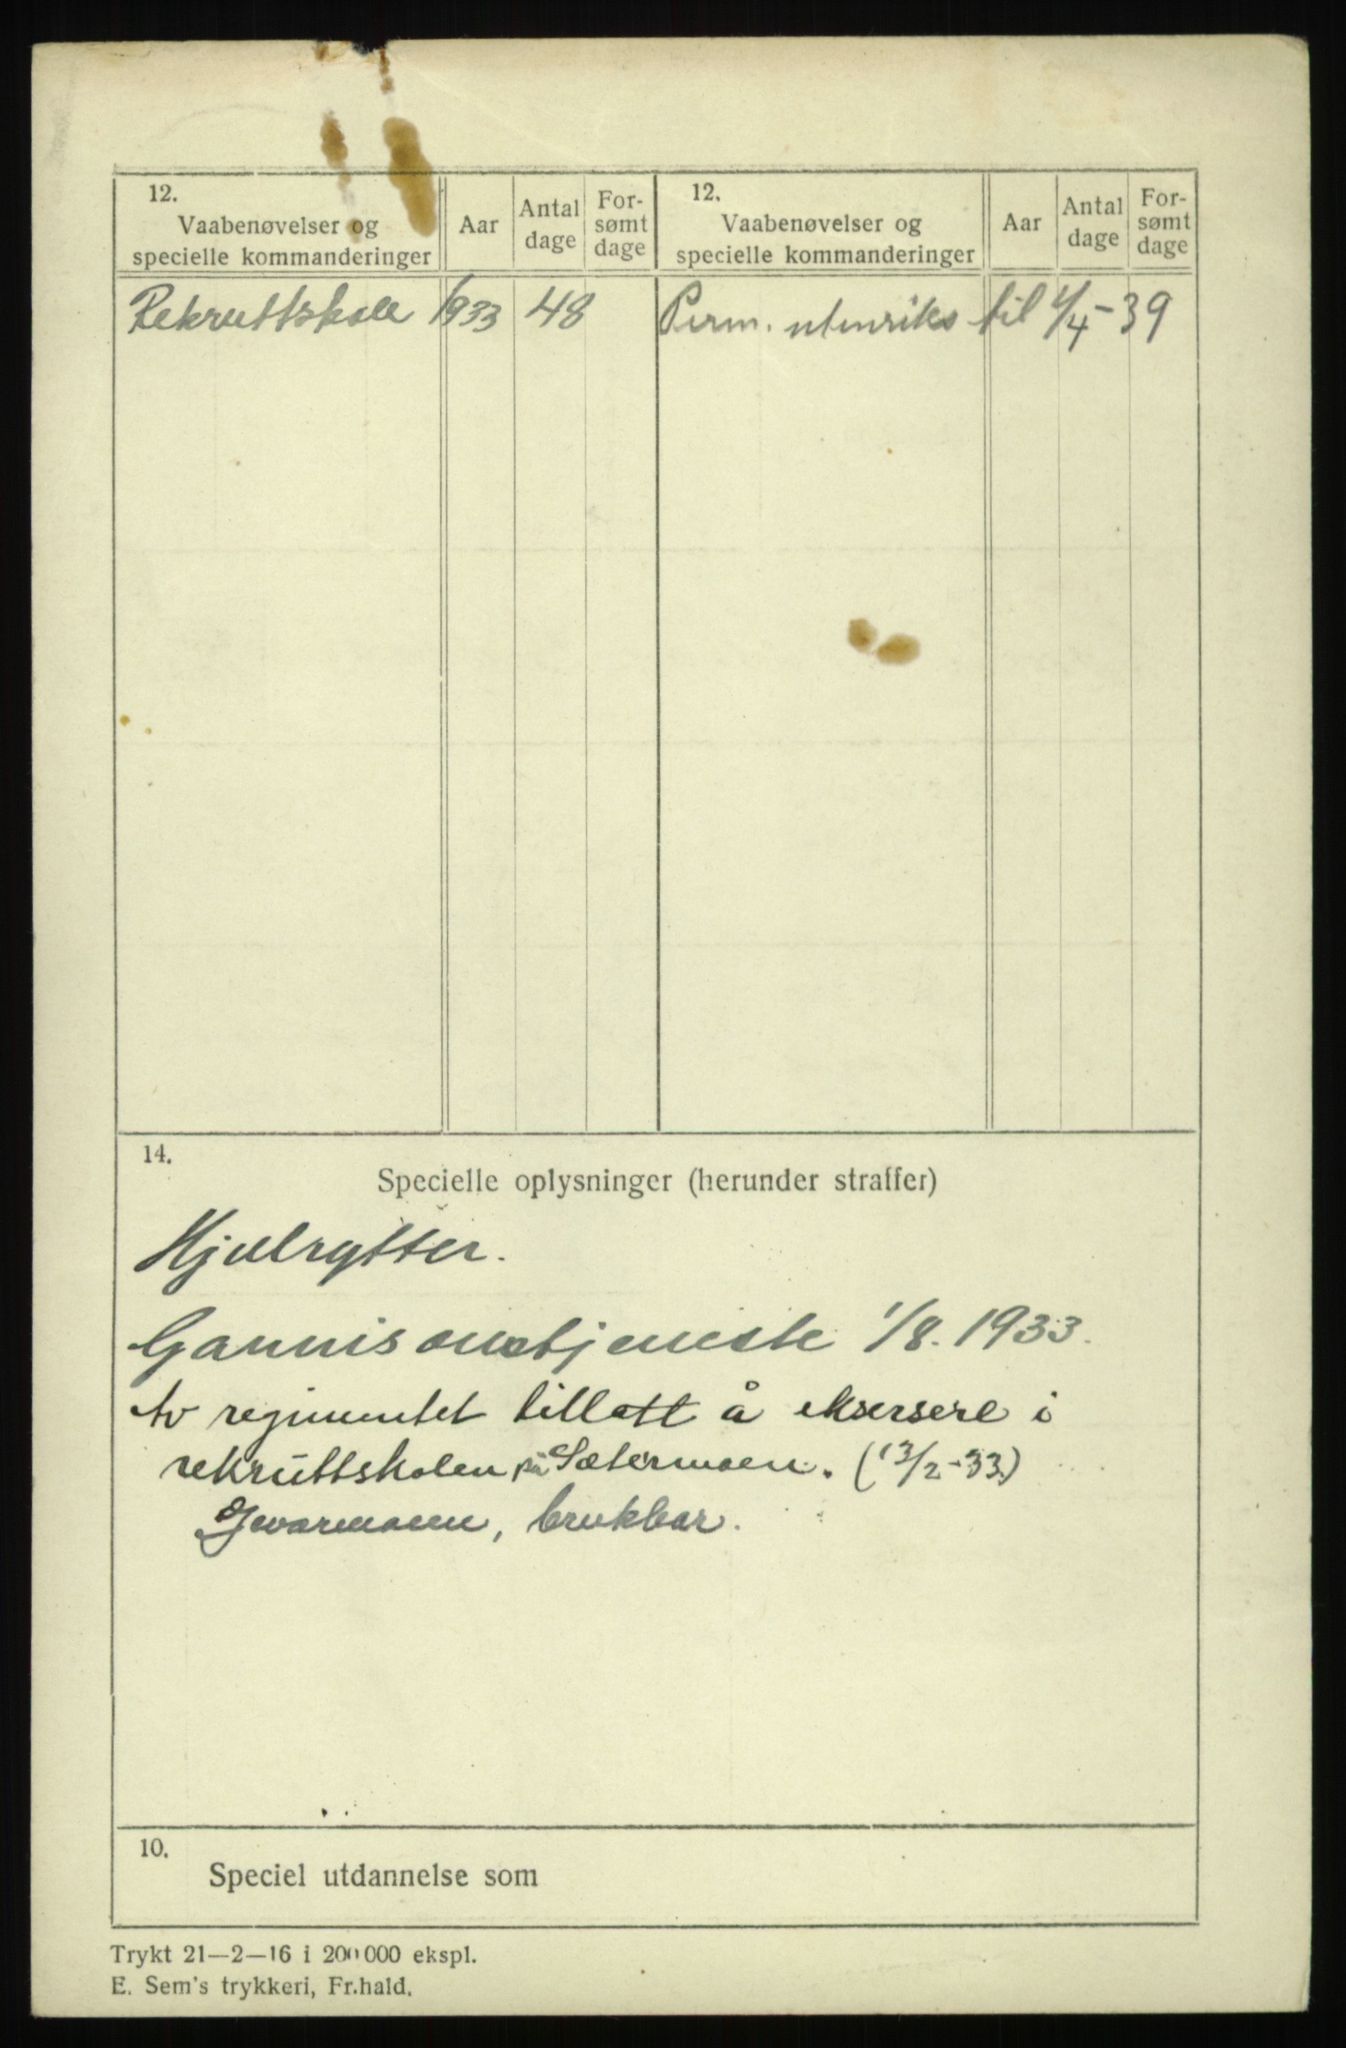 12.
Vaabenøvelser og
specielle kommanderinger
Aar
Antal
dage
For-
sømt
dage
12.
Vaabenøvelser og
specielle kommanderinger
Aar
Antal
dage
For-
sømt
dage
Rekruttskole 1933 48
Perm. utenriks til 1/4-39
14.
Specielle oplysninger (herunder straffer)
Hjulrytter.
Garnisonstjeneste 1/8. 1933.
Av regimentet tillatt å eksersere i
rekruttskolen på Sætermoen. (13/2-33)
brukbar.
10.
Speciel utdannelse som
Trykt 21—2—16 i 200 000 ekspl.
E. Sem's trykkeri, Fr.hald.